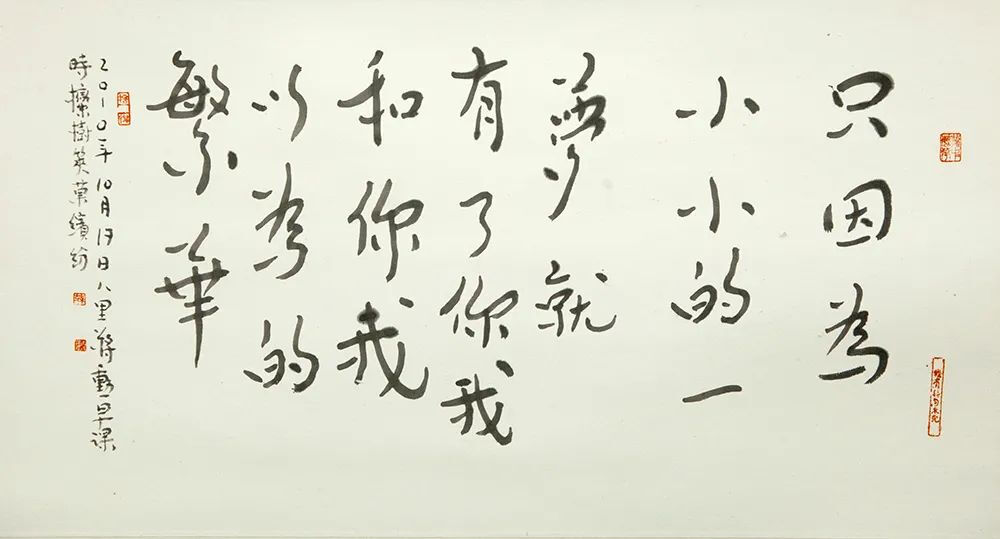 只因為
小小的一
夢就
有了你我
和你我
以為的
繁華
2010年10月17日八里蔣勳早課
時欒樹英葉繽紛